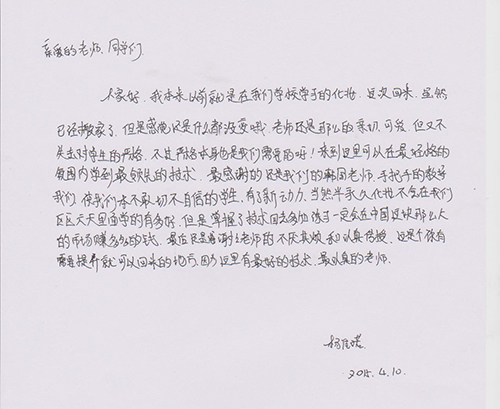 亲爱的老师、同学们
大家好，我本来以前就是在我们学校学习的化妆，这次回来，虽然
已经搬家了，但是感觉还是什么都没变哦，老师还是那么的亲切可爱，但又不
失去对学生的严格，不过严格本身也是我们需要的呀！来到这里可以在最轻松的
氛围内学到最领先的技术，最感谢的还是我们的韩国老师，手把手的教导
我们，使我们本不敢切不自信的学生，有了新动力，当然半永久化妆不会在我们
区区天天里面学的有多好，但是掌握了技术回去多加练习一定会在中国这块那么大
的市场赚多多的钱，最后还是感谢老师的不厌其烦和认真传授，这是个你有
需要提升就可以回来的地方，因为这里有最好的技术，最认真的老师。
2015.4.10.